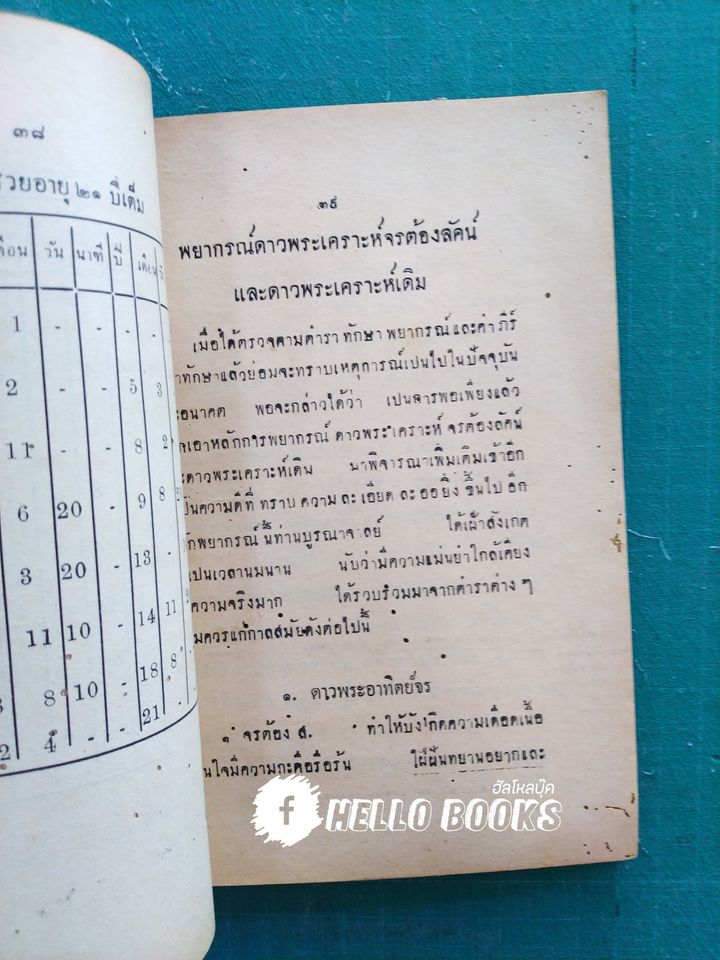 ๓๘
รวยอายุ ๒๑ ปีเต็ม
เดือน วัน นาที ปี เดือน
1 - - - - -
2 - - - 5 3
11 - - 8 2
6 20 - 9 8
3 20 - 13 -
11 10 - 14 11
8 10 - 18 8
2 4 - - 21 -
๓๙
พยากรณ์ดาวพระเคราะห์จรต้องลัคน์
และดาวพระเคราะห์เดิม
เมื่อได้ตรวจตามตำรา ทักษา พยากรณ์ และคำ ภีร์
าทักษาแล้วย่อมจะทราบเหตุการณ์เปนไปในปัจจุบัน
ะอนาคต พอจะกล่าวได้ว่า เปนการพอเพียงแล้ว
กเอาหลักการพยากรณ์ ดาวพระเคราะห์ จรต้องลัคน์
ะดาวพระเคราะห์เดิน นาพิจารณาเพิ่มเติมเข้าอีก
ป็นความดีที่ ทราบ ความ ละ เอียด ละ ออยิ่ง ขึ้นไป อีก
ักพยากรณ์ นี้ท่านบูรณาจาลย์ ได้เฝ้าสังเกต
เปนเวลานมนาน นับว่ามีความแม่นยำใกล้เคียง
ความจริงมาก ได้รวบรวมมาจากตำราต่าง ๆ
มควรแก่กาลสมัยดังต่อไปนี้
๑. ดาวพระอาทิตย์จร
๑ จรต้อง ส. ทำให้บังเกิดความเดือดเนื้อ
นใจมีความกะตือรือร้น ใฝ่ฝันทยานอยากและ
ฮัลโหลบุ๊ค
f HELLO BOOKS